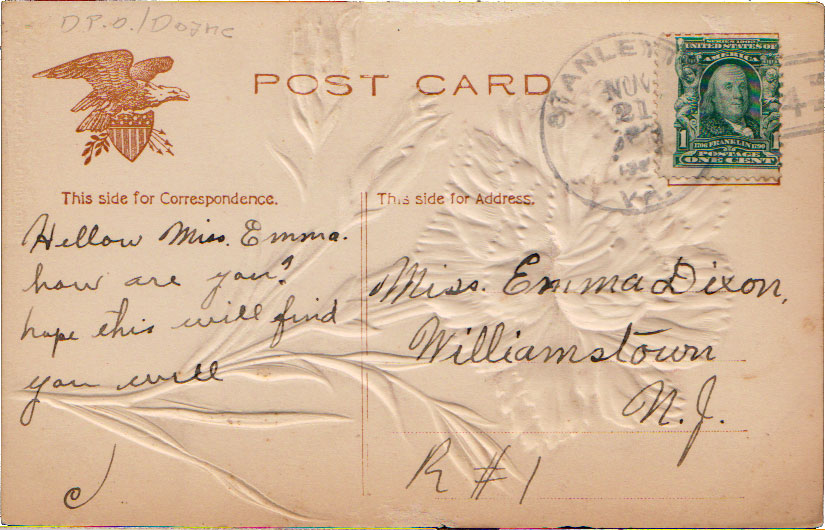 D.P.O./Doane
POST CARD
STANLEY
NOV
21
VA.
4
SERIES 1902
UNITED STATES OF
AMERICA
1
1706 FRANKLIN 1790
POSTAGE
ONE CENT
This side for Correspondence.
This side for Address.
Hellow Miss. Emma.
how are you?
hope this will find
you will
Miss. Emma Dixon,
Williamstown
N.J.
R #1